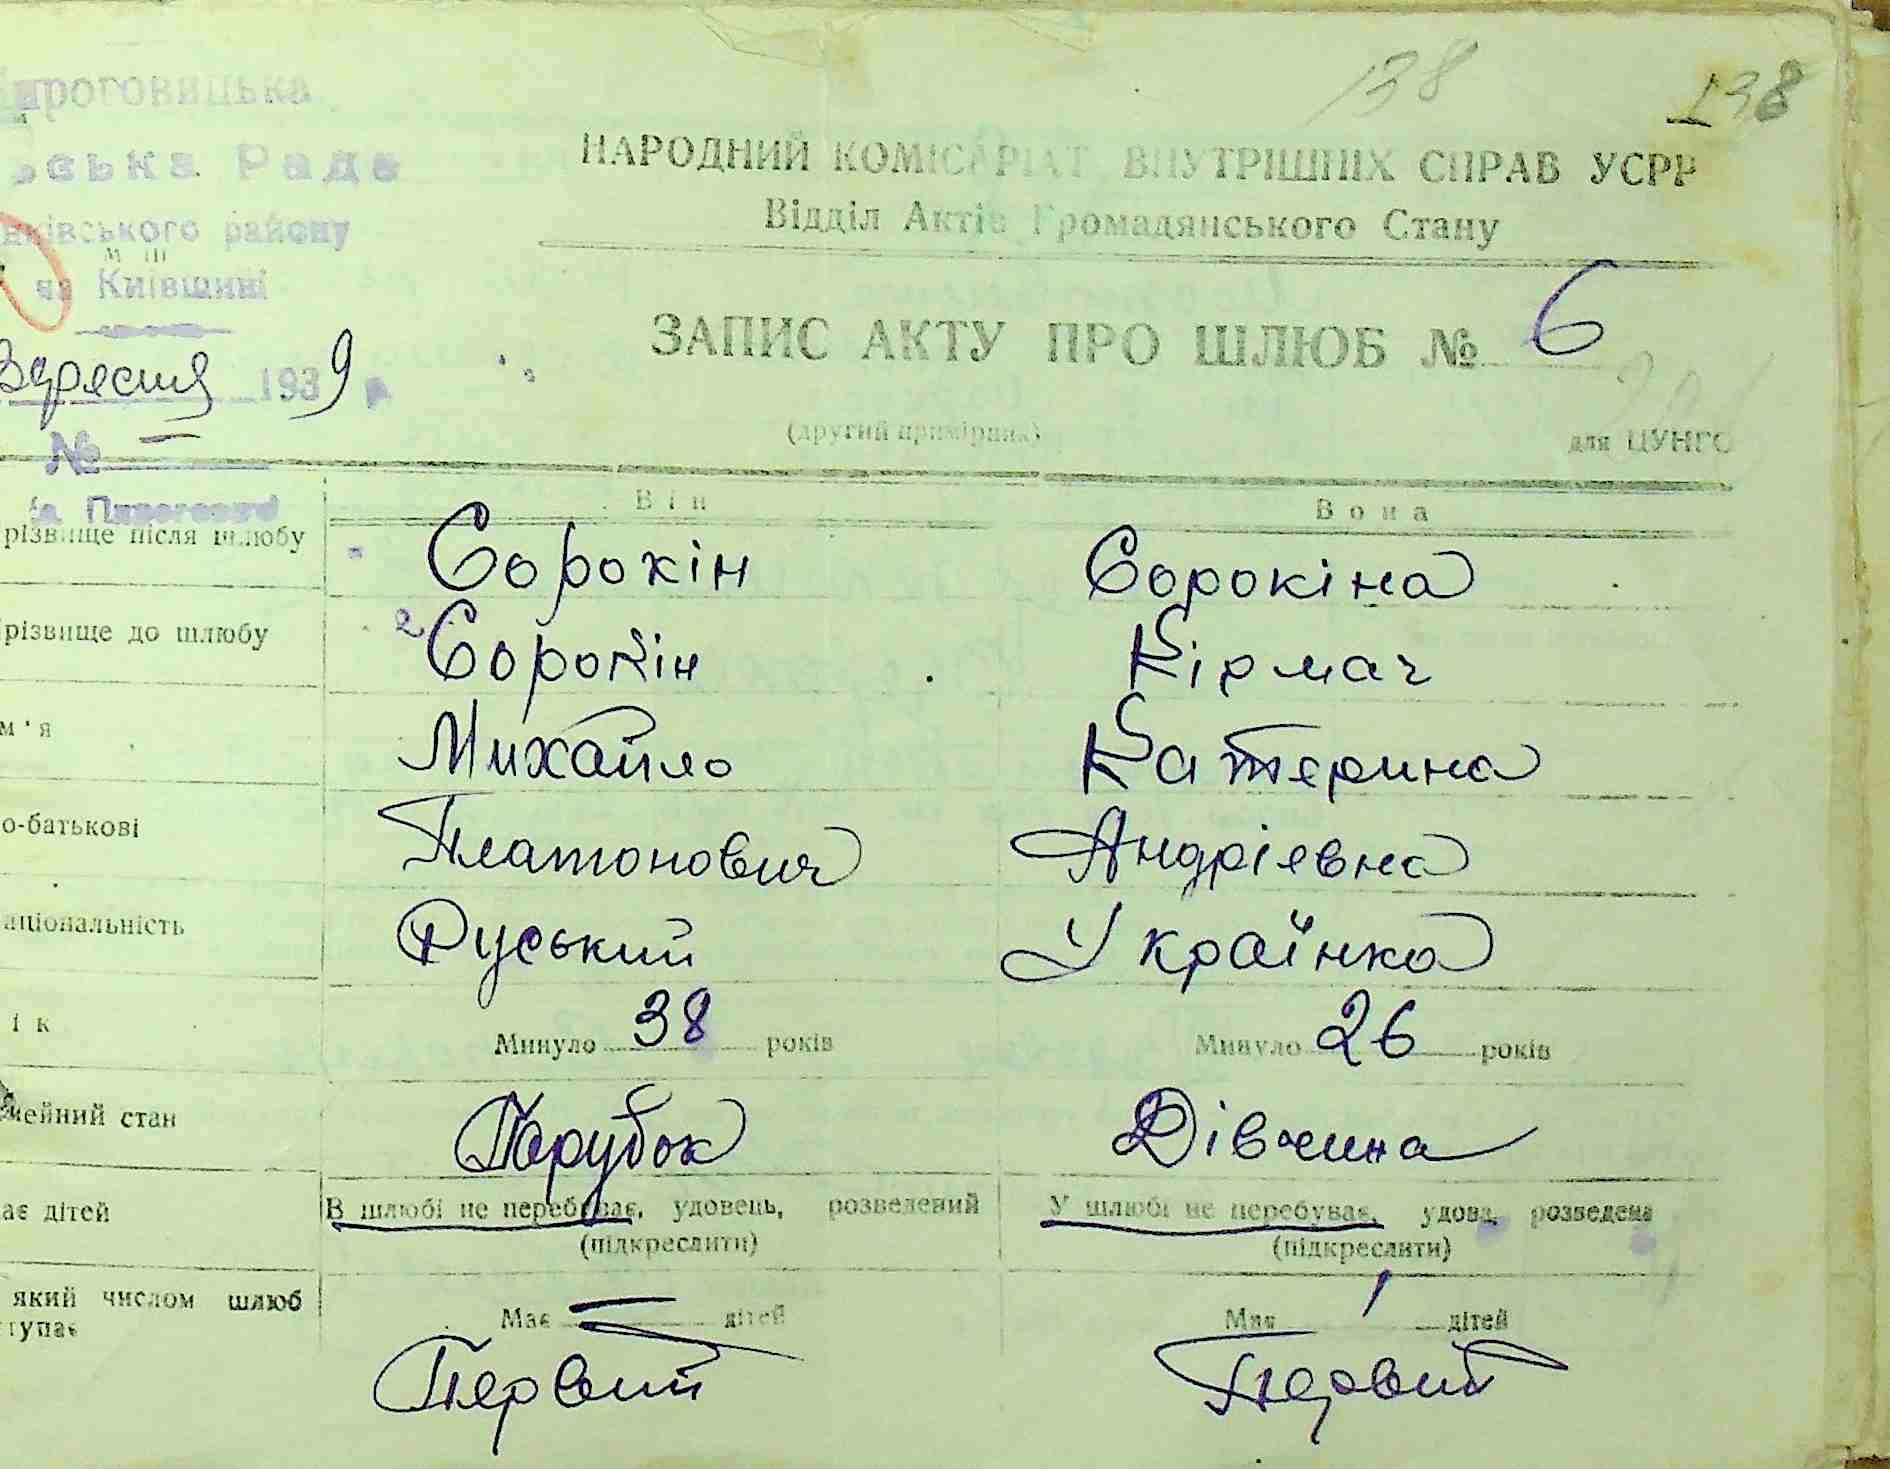 138 138
роговицька
ська Рада
нківського району
на Київщині
НАРОДНИЙ КОМІСАРІАТ ВНУТРІШНІХ СПРАВ УСРР
Відділ Актів Громадянського Стану
ЗАПИС АКТУ ПРО ШЛЮБ № 6
Вересня 1939 р.
№ —
(другий примірник)
для ЦУНГО
Він Вона
різвище після шлюбу Сорокін Сорокіна
різвище до шлюбу Сорокін Кірмач
м'я Михайло Катерина
о-батькові Платонович Андріевна
аціональність Руський Українка
ік Минуло 38 років Минуло 26 років
мейний стан Парубок Дівчина
ає дітей В шлюбі не перебуває, удовець, розведений У шлюбі не перебуває, удова, розведена
(підкреслити) (підкреслити)
який числом шлюб Має — дітей Має 1 дітей
тупає Первий Первий